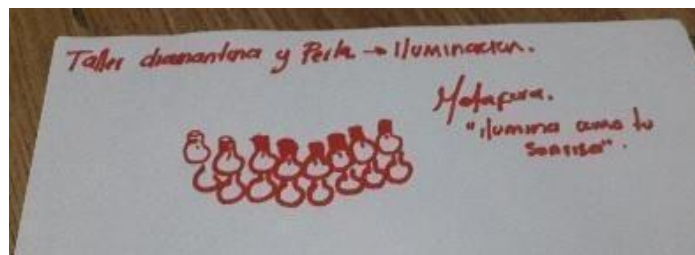 Taller diamantina y Perla → Iluminación.
Metafora.
"ilumina como tu
sonrisa".